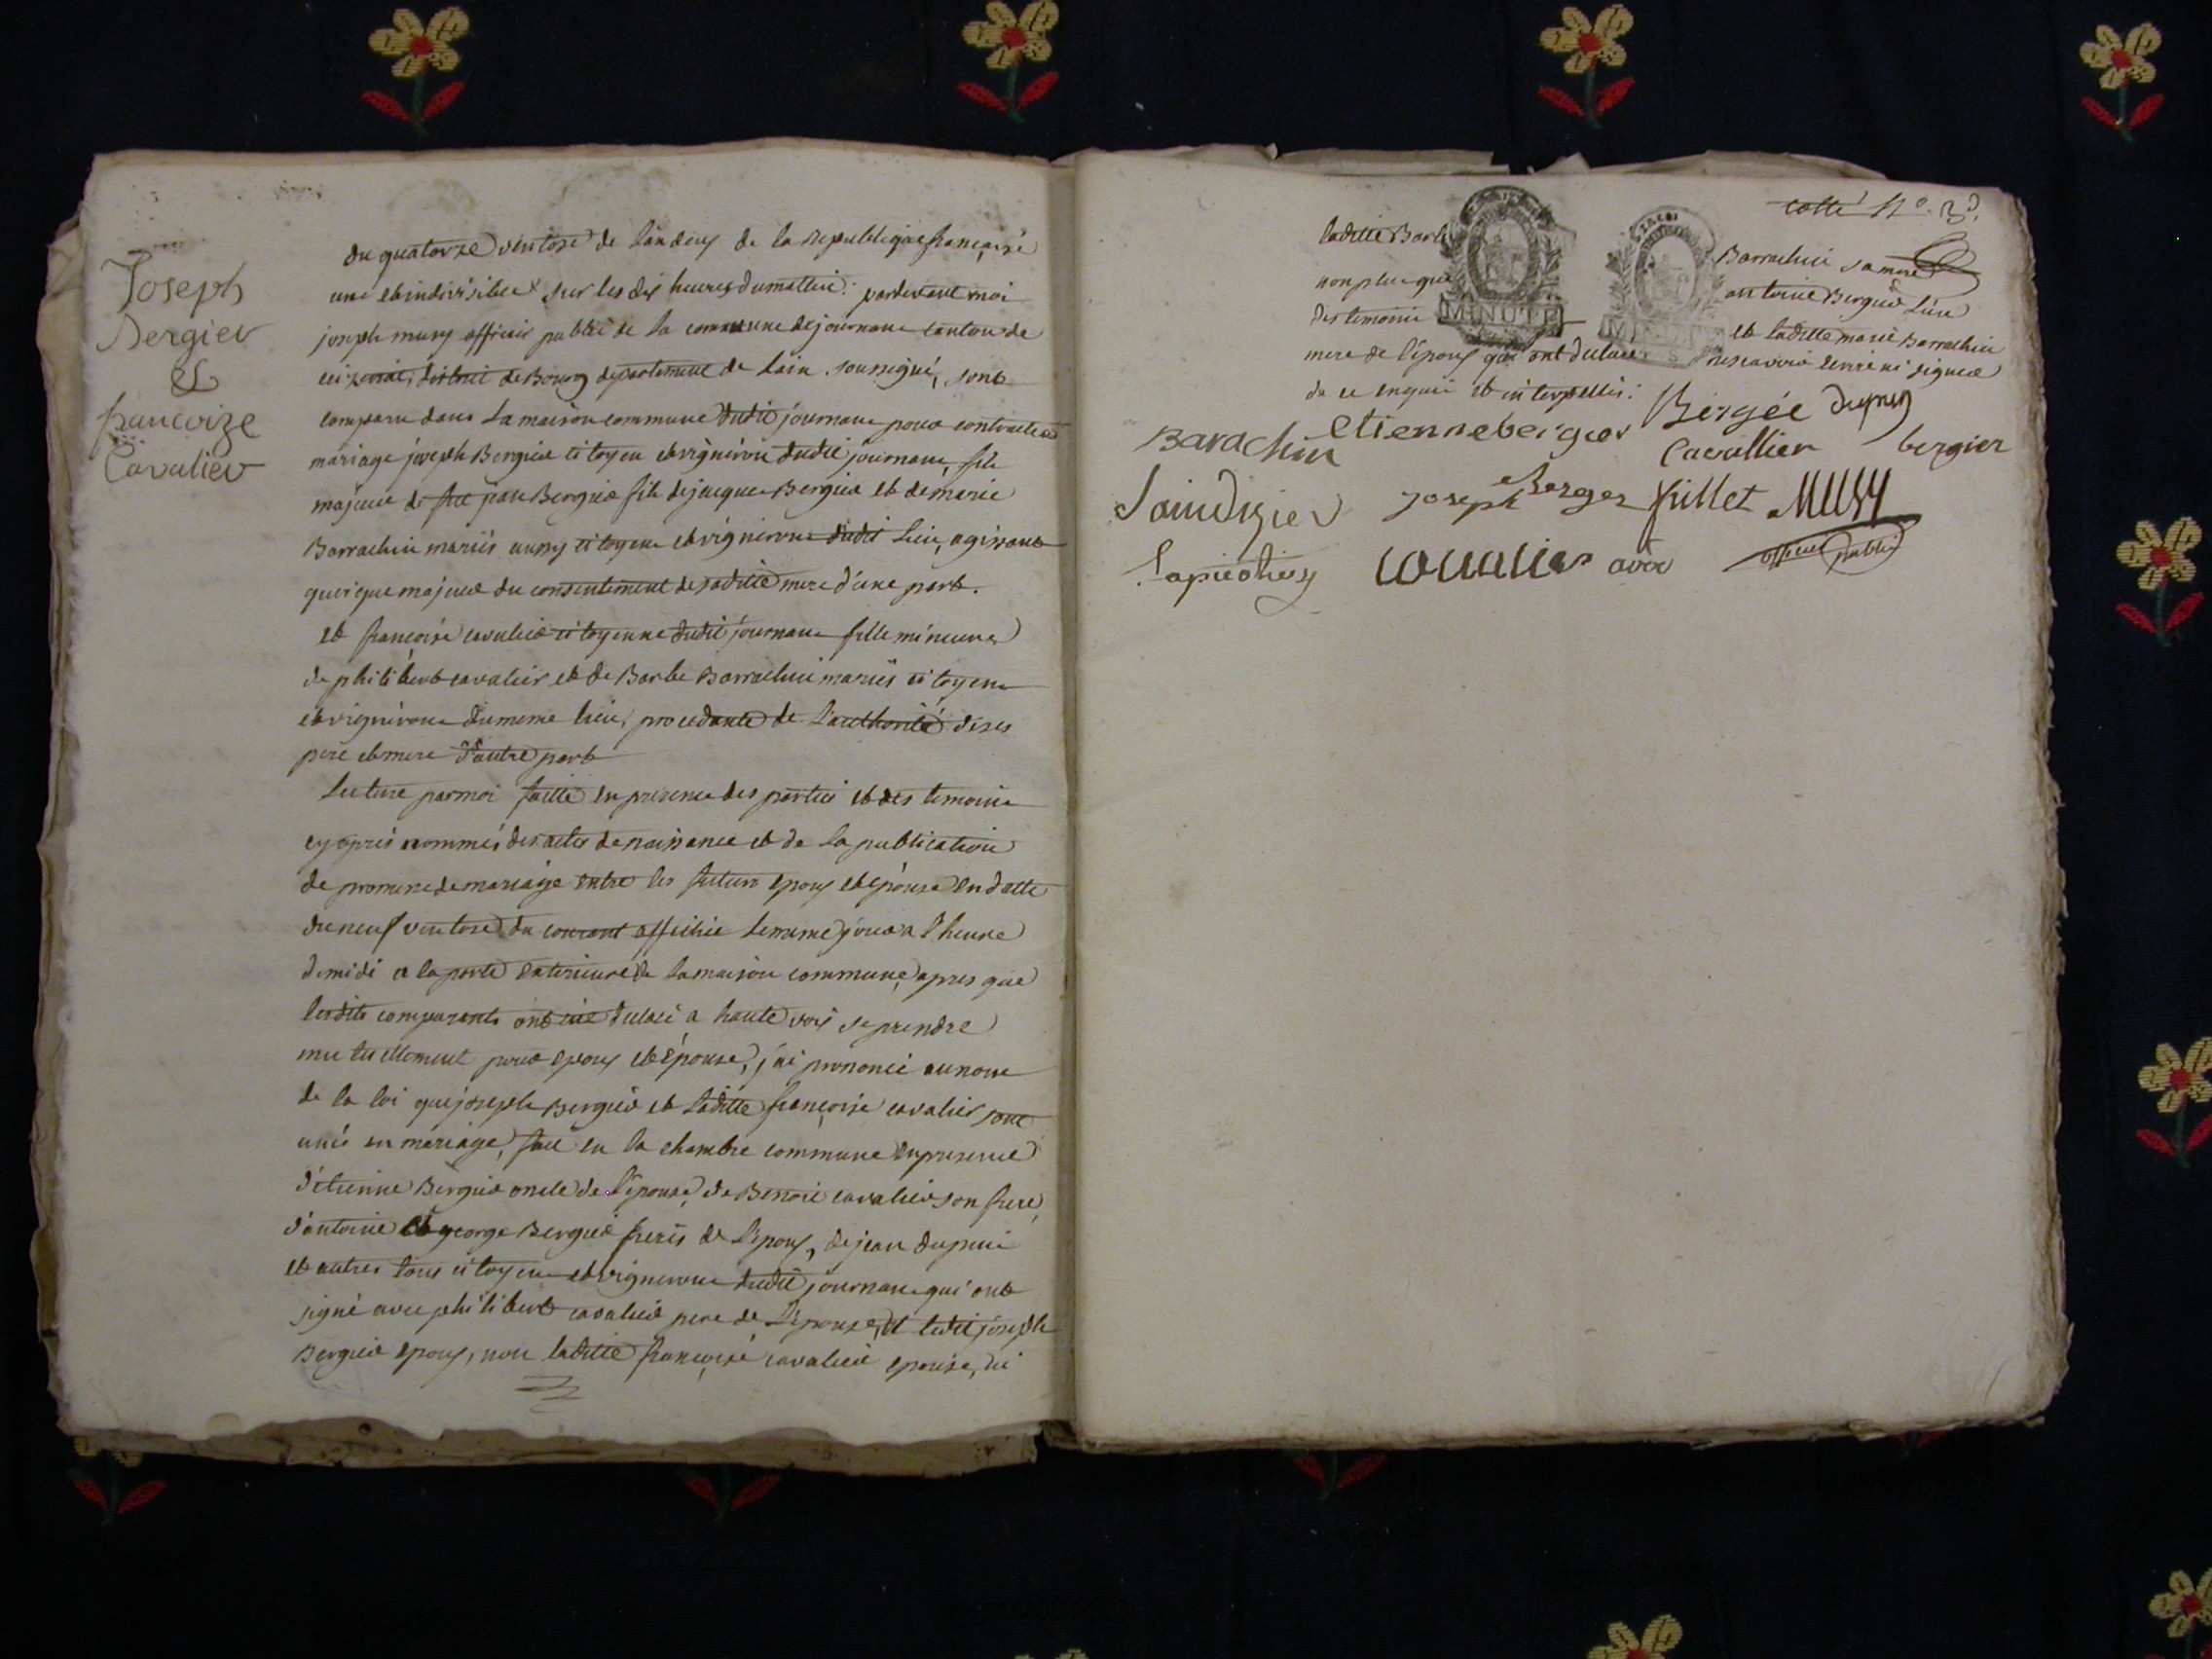 Joseph
Bergier
&
francoize
Cavalier
du quatorze ventose de l'an deux de la Republique française
une et indivisible sur les dix heures du mattin. pardevant moi
joseph musy officier public de la commune de journans canton de
ceizeriat, district de Bourg departement de l'ain. soussigné, sont
comparu dans la maison commune dudit journans pour contracter
mariage joseph Bergier citoyen et vigniron dudit journans, fils
majeur de Bergier fils de jacques Bergier et de marie
Barrachin mariés citoyens et vignirons dudit lieu, agissant
quoique majeur du consentement de saditte mere d'une part.
et françoise cavalier citoyenne dudit journans fille mineure
de philibert cavalier et de Barbe Barrachin mariés citoyens
et vignirons du meme lieu, procedante de l'authorité de ses
pere et mere d'autre part
Lecture par moi faitte en presence des parties et des temoins
cy apres nommés des actes de naissance et de la publication
de promesse de mariage entre les futurs epoux et épouse en datte
du neuf ventose du courant affichée le meme jour a l'heure
de midi a la porte exterieure de la maison commune, apres que
lesdits comparents ont declaré a haute voix se prendre
mutuellement pour epoux et épouse, j'ai prononcé au nom
de la loi que joseph Bergier et laditte françoise cavalier sont
unis en mariage, fait en la chambre commune en presence
d'étienne Bergier oncle de l'épouse, de Benoit cavalier son frere,
d'antoine et george Bergier freres de l'époux, de jean dupuis
et autres tous citoyens et vignerons dudit journans qui ont
signé avec philibert cavalier pere de l'épouse, et ledit joseph
Bergier epoux, non laditte françoise cavalier epouse, ni
cotté N°. 3
laditte Barbe Barrachin sa mere
non plus que antoine Bergier l'un
des temoins et laditte marie Barrachin
MINUTE
mere de l'époux qui ont declaré ne scavoir écrire ni signer
de ce enquis et interpellés.
Barachin etienne bergier Bergée dupuis
Cavallier bergier
Saindizier joseph Berger fillet MUSY
cavalier officier public